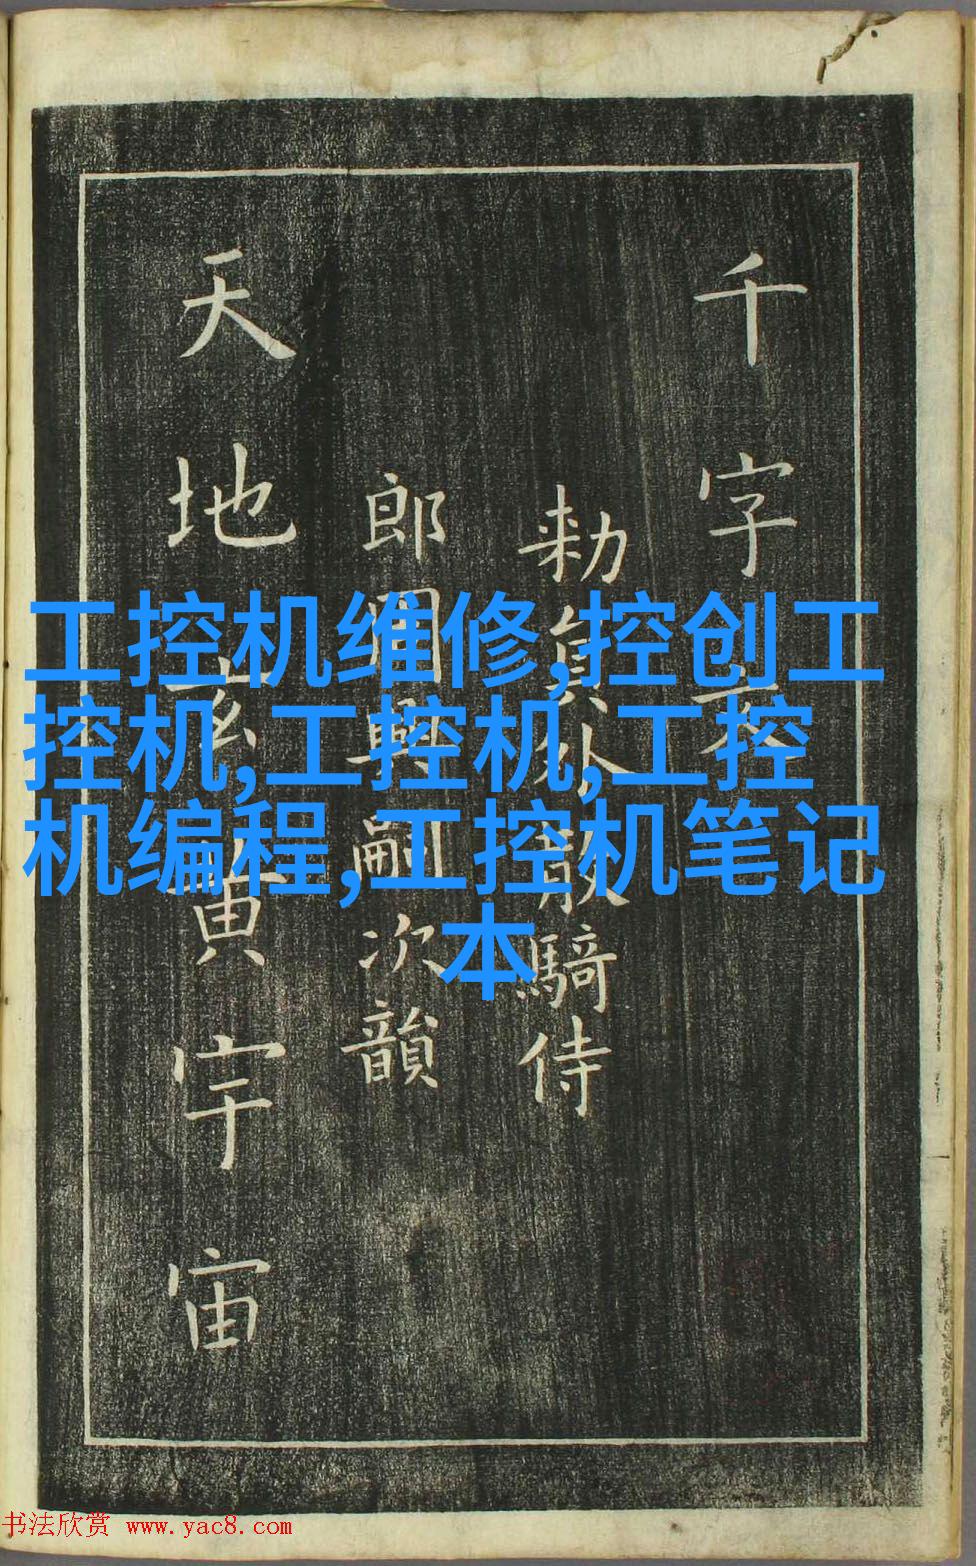 千字文
勅員外散騎侍
郎周興嗣次韻
天地玄黃宇宙
工控机维修,控创工
控机,工控机,工控
机编程,工控机笔记
本
书法欣赏 www.yac8.com